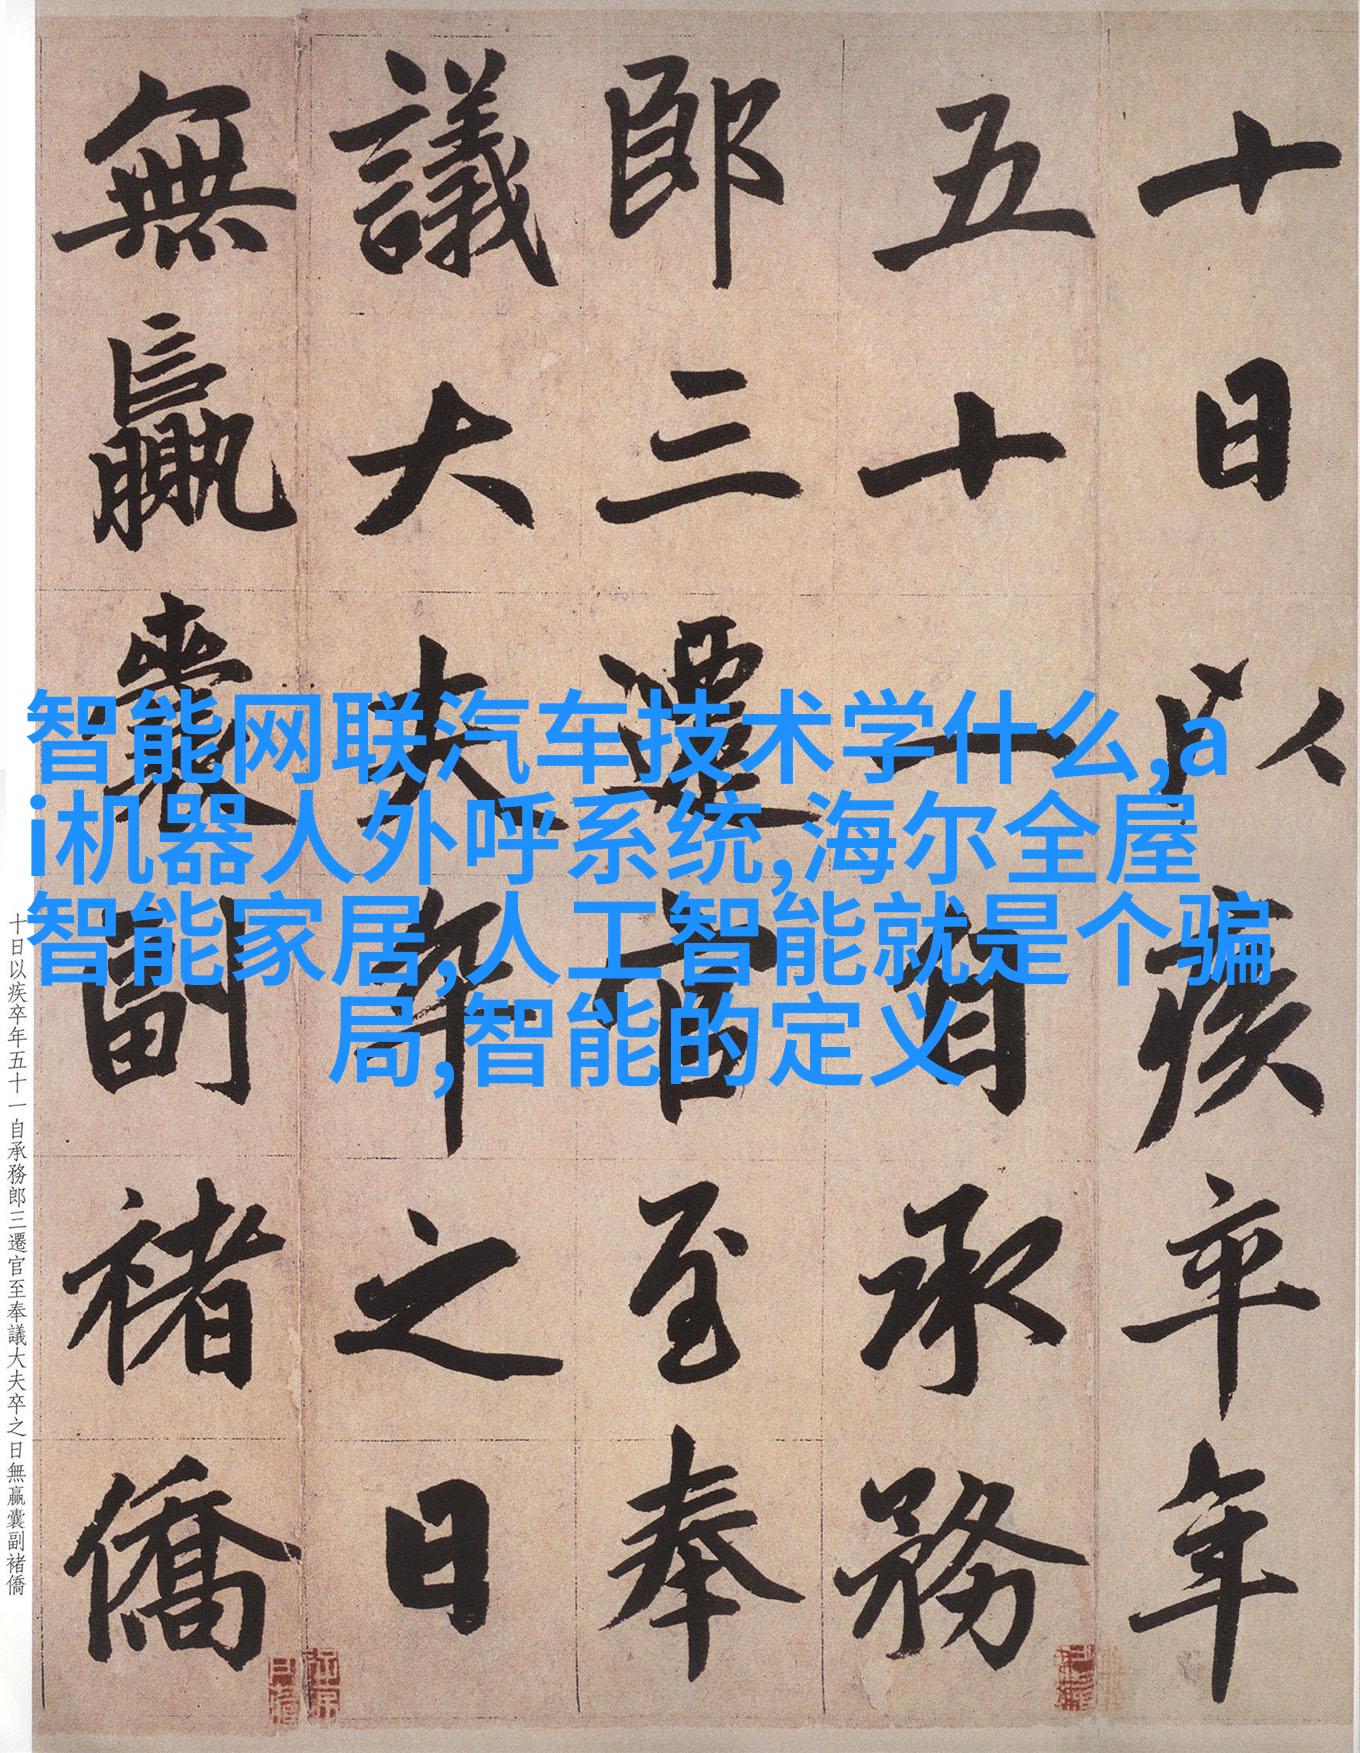 十日以疾卒年
五十一自承務
郎三遷官至奉
議大夫卒之日
無贏囊副褚僑
智能网联汽车技术学什么,a
i机器人外呼系统,海尔全屋
智能家居,人工智能就是个骗
局,智能的定义
十日以疾卒年五十一自承務郎三遷官至奉議大夫卒之日無贏囊副褚僑